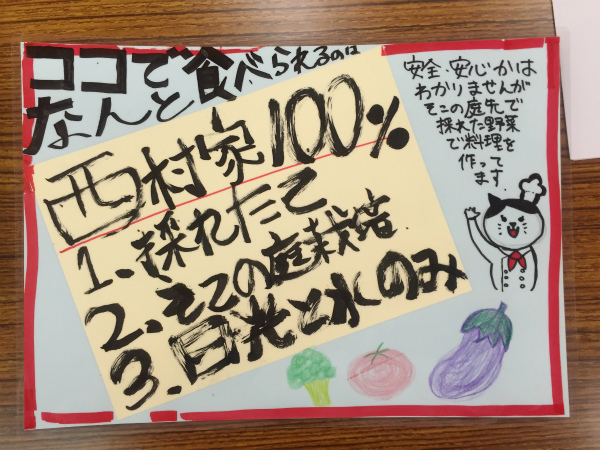 ココで食べられるのは
なんと
西村家100%
1.採れたて
2.そこの庭栽培
3.日光と水のみ
安全・安心かは
わかりませんが
そこの庭先で
採れた野菜
で料理を
作って
ます